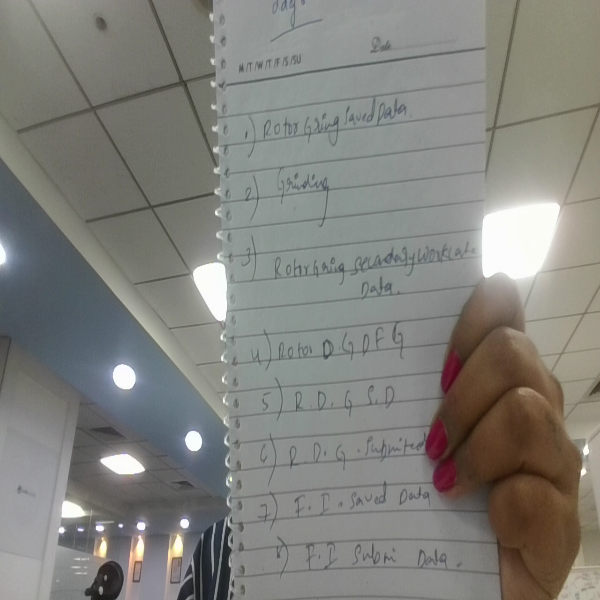 days
Date
M/T/W/T/F/S/SU
1) Rotor Gring Saved Data.
2) Grinding
3) Rotor Gring Secondary Work
Data.
4) Rotor D G D F G
5) R. D. G S. D
6) R. D. G. Submited
7) F. I. Saved Data
8) F. I Submi Data.